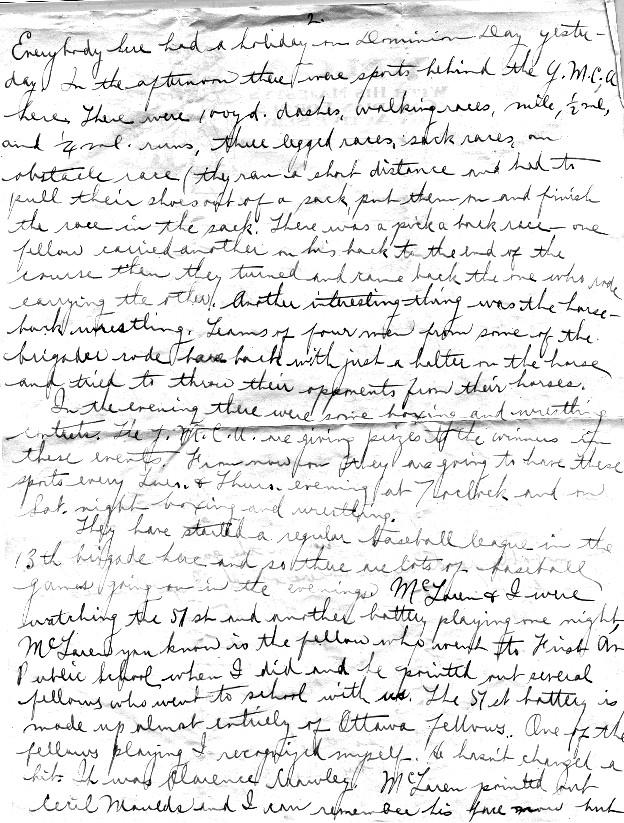 2.
Everybody here had a holiday on Dominion Day yester-
day. In the afternoon there were sports behind the Y.M.C.A
here. There were 100yd. dashes, walking races, mile, ½ ml,
and ¼ ml. runs, three legged races, sack races, an
obstacle race (they ran a short distance and had to
pull their shoes out of a sack, put them on and finish
the race in the sack. There was a pick a back race - one
fellow carried another on his back to the end of the
course then they turned and came back the one who rode
carrying the other. Another interesting thing was the horse-
back wrestling. Teams of four men from some of the
brigades rode bare back with just a halter on the horse
and tried to throw their opponents from their horses.
In the evening there were some boxing and wrestling
contests. The Y.M.C.A. are giving prizes to the winners in
these events. From now on they are going to have these
sports every Tues. & Thurs. evening at 7 o'clock and on
Sat. night boxing and wrestling.
They have started a regular baseball league in the
13th brigade here and so there are lots of baseball
games going on in the evenings. McLaren & I were
watching the 51st and another battery playing one night
McLaren you know is the fellow who went to First Av
Public School when I did and he pointed out several
fellows who went to school with us. The 51st battery is
made up almost entirely of Ottawa fellows. One of the
fellows playing I recognized myself. He hasn't changed a
bit. It was Clarence Crawley. McLaren pointed out
Cecil and I can remember his face now but